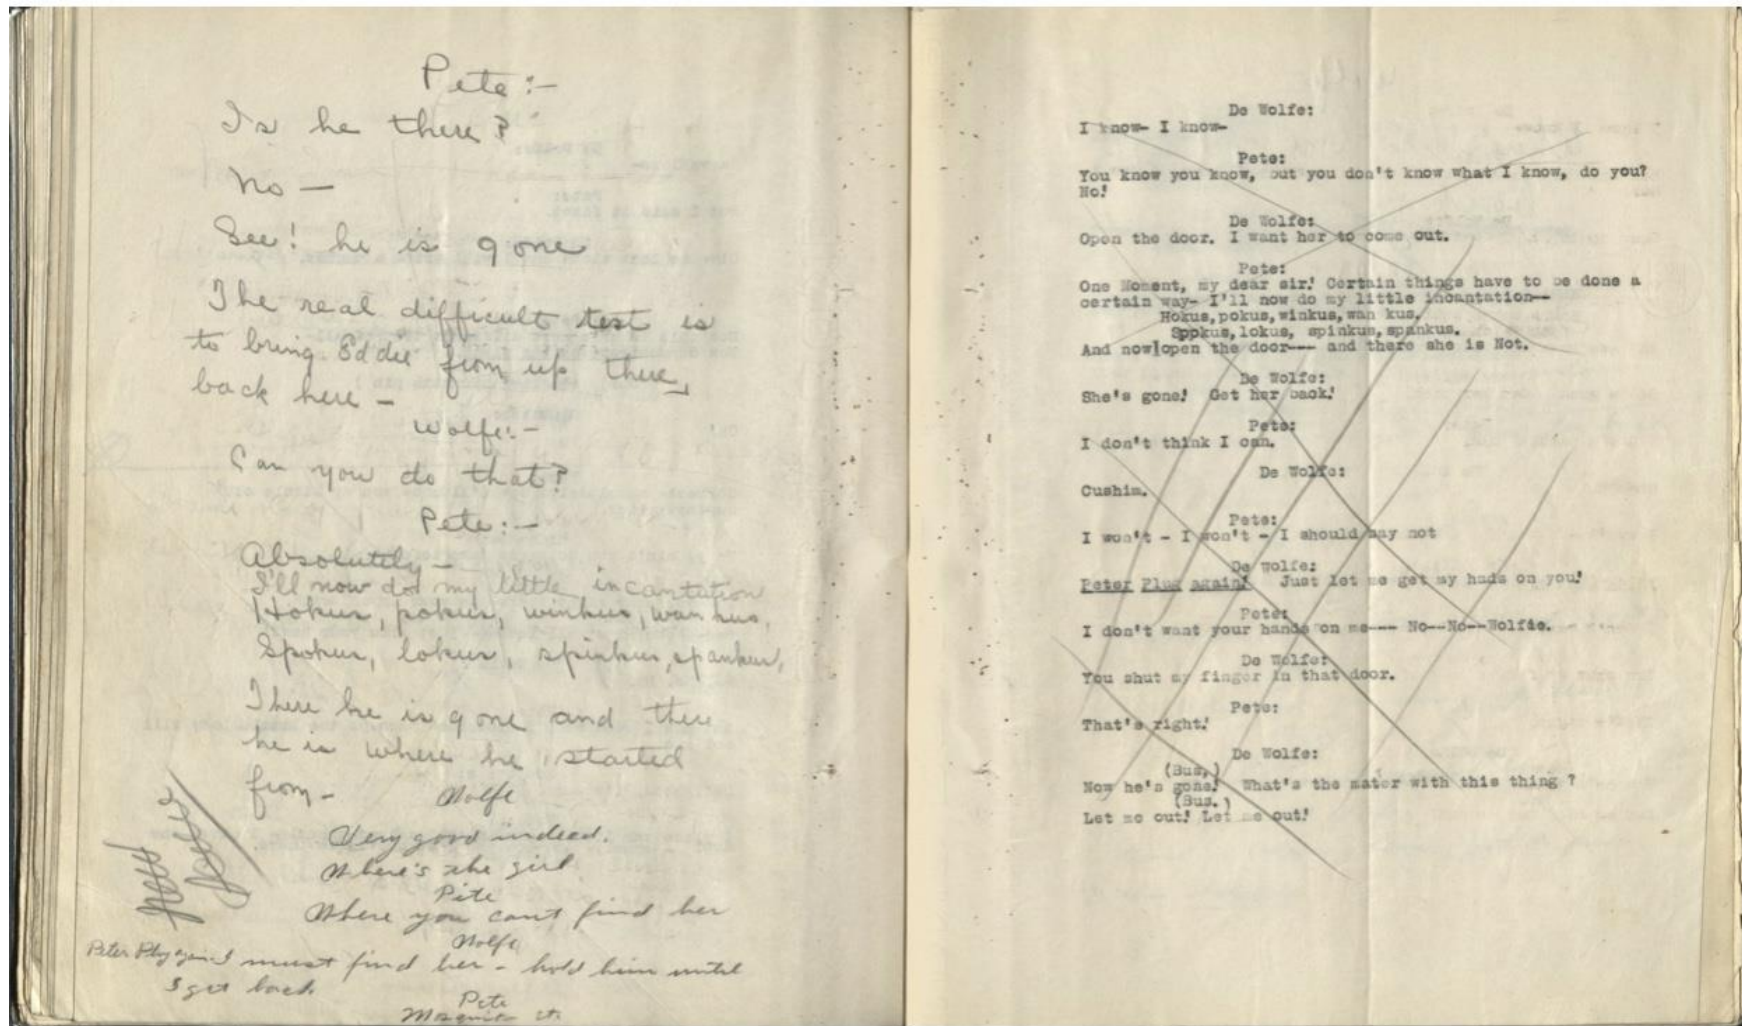 Pete:-
Is he there?
No —
See! he is gone
The real difficult test is
to bring Eddie from up there,
back here -
Wolfe:-
Can you do that?
Pete:-
Absolutely -
I'll now do my little incantation
Hokus, pokus, winkus, wan kus,
Spokus, lokus, spinkus, spankus,
There he is gone and there
he is where he started
from -
Wolfe
Very good indeed.
Where's the girl
Pete
Where you cant find her
Wolfe
Peter Plug again I must find her - hold him until
I get back
Pete
De Wolfe:
I know- I know-
Pete:
You know you know, but you don't know what I know, do you?
No!
De Wolfe:
Open the door. I want her to come out.
Pete:
One Moment, my dear sir! Certain things have to be done a
certain way- I'll now do my little incantation--
Hokus, pokus, winkus, wan kus.
Spokus, lokus, spinkus, spankus.
And now open the door--- and there she is Not.
De Wolfe:
She's gone! Get her back!
Pete:
I don't think I can.
De Wolfe:
Cushim.
Pete:
I won't - I won't - I should say not
De Wolfe:
Peter Plug again! Just let me get my hads on you!
Pete:
I don't want your hands on me--- No--No--Wolfie.
De Wolfe:
You shut my finger in that door.
Pete:
That's right!
De Wolfe:
(Bus,)
Now he's gone! What's the mater with this thing ?
(Bus.)
Let me out! Let me out!